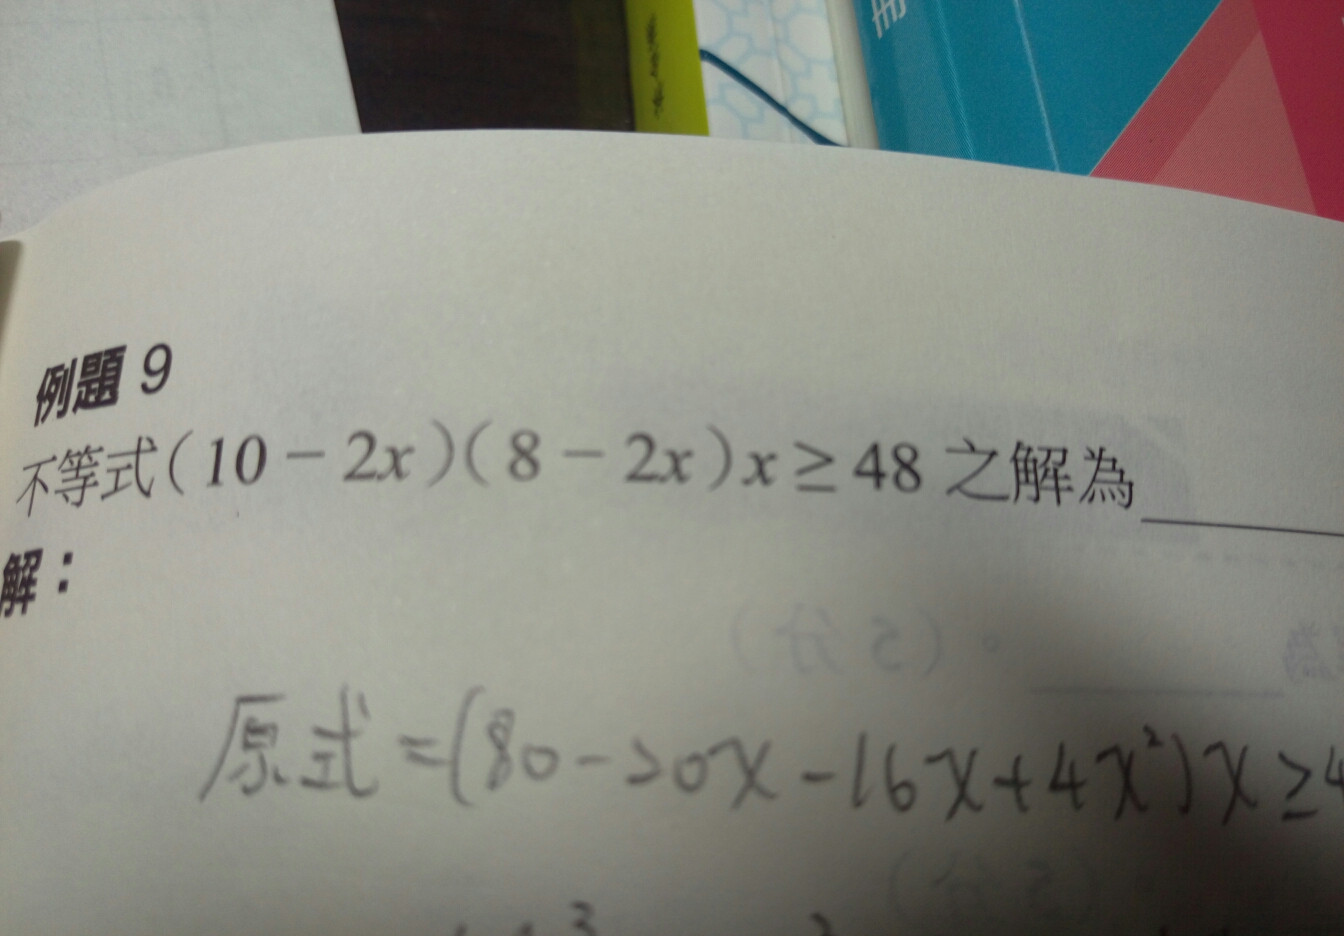 冊
例題 9
不等式(10 - 2x)(8 - 2x)x ≥ 48 之解為
解：
原式 = (80 - 20x - 16x + 4x²)x ≥ 4